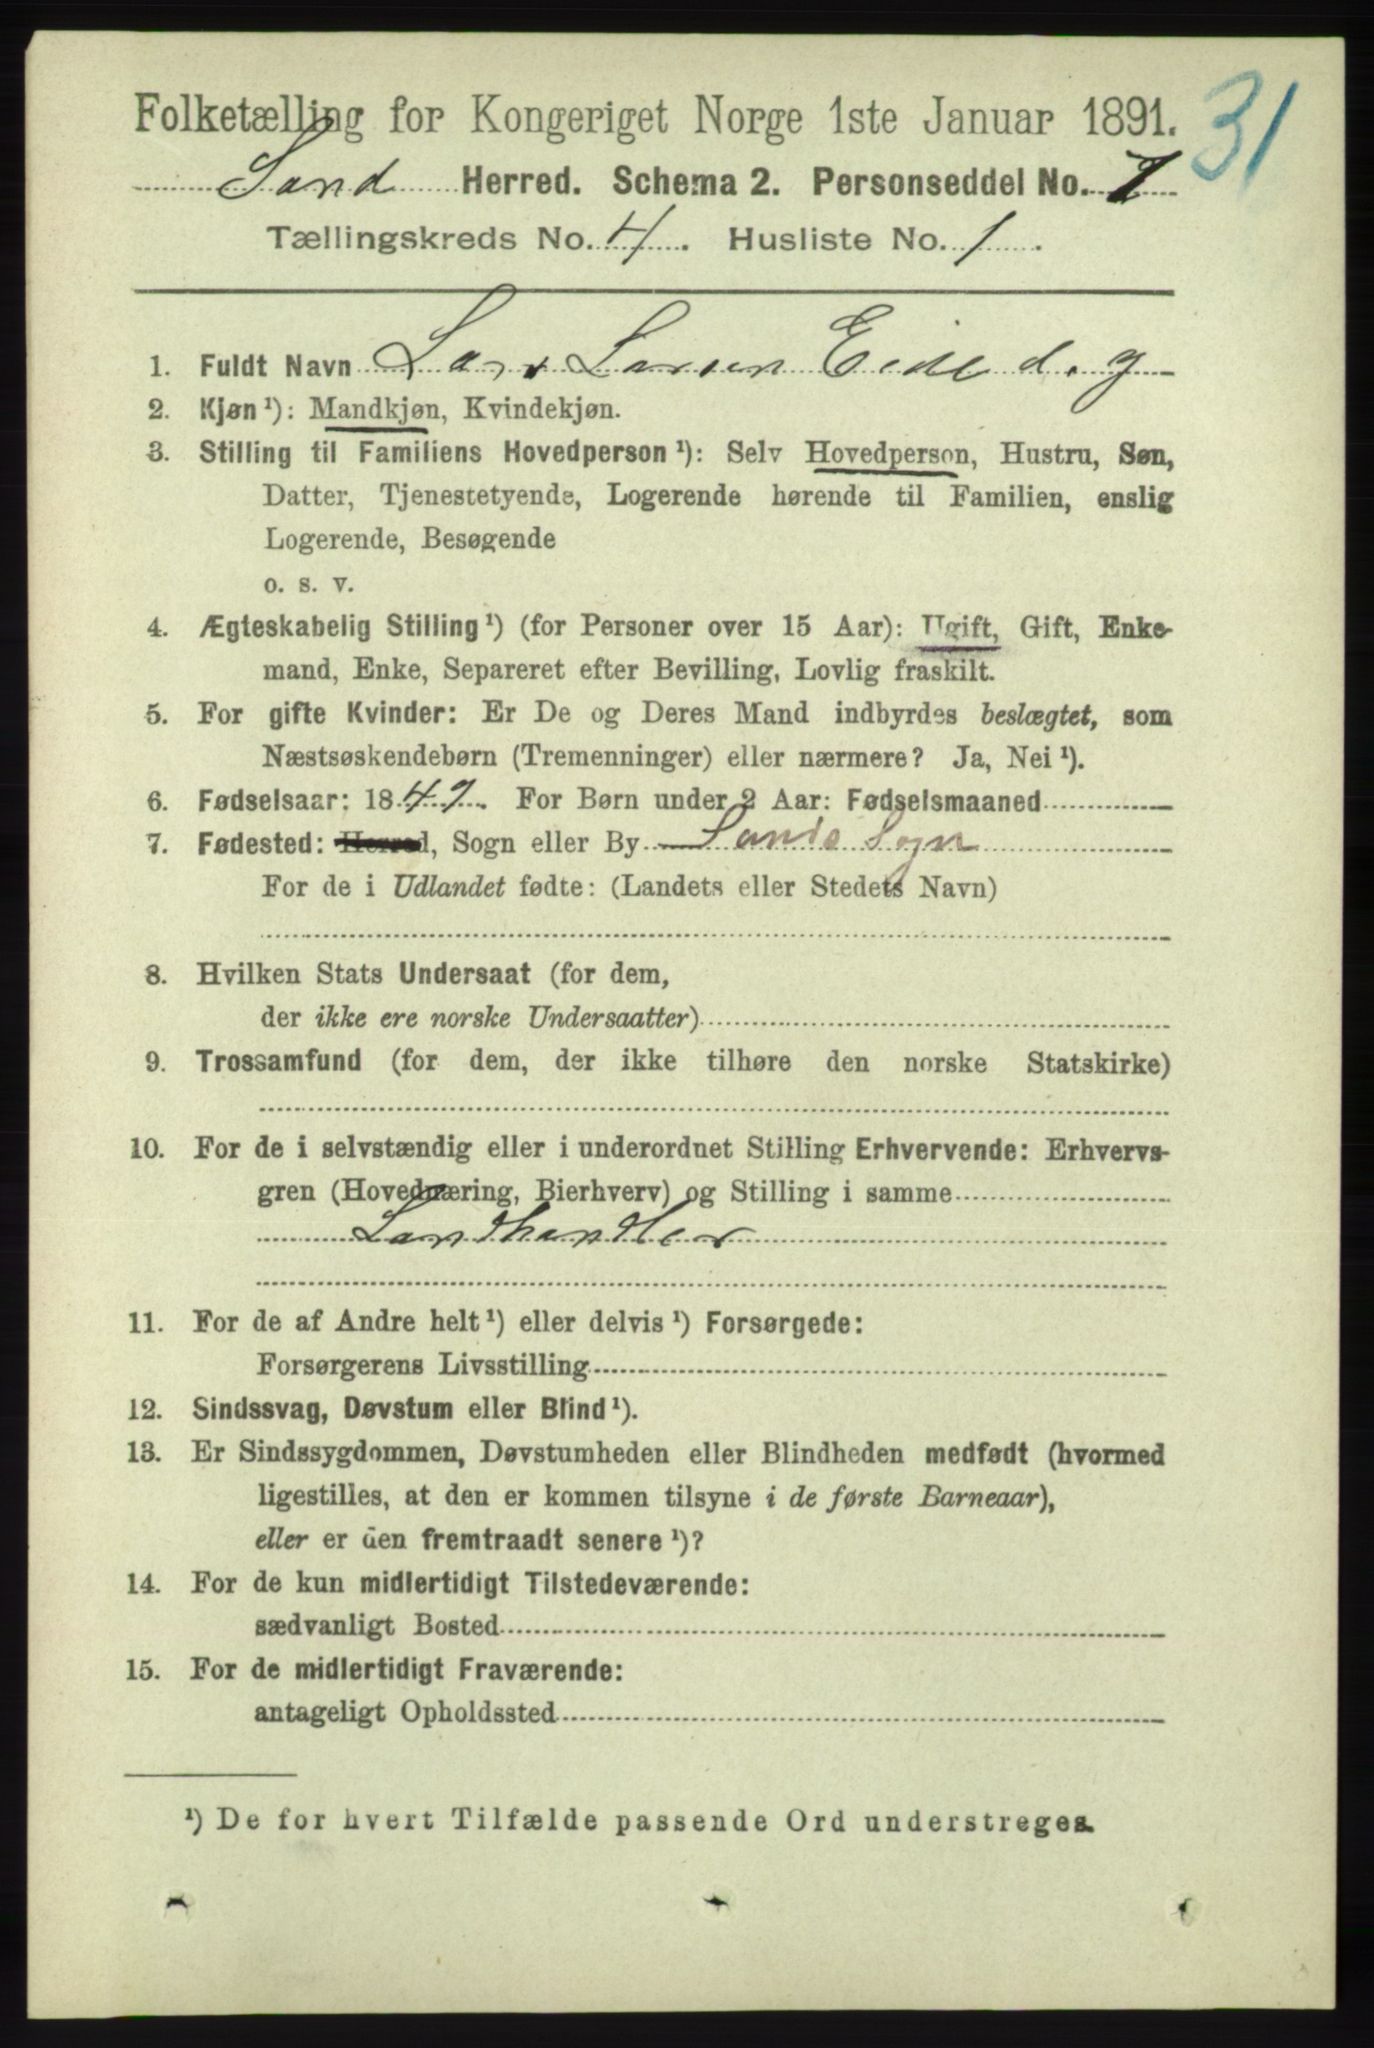 31
Folketælling for Kongeriget Norge 1ste Januar 1891.
Sand Herred. Schema 2. Personseddel No. 7
Tællingskreds No. 4. Husliste No. 1.
1. Fuldt Navn Lars Larsen Eide d. y
2. Kjøn ¹): Mandkjøn, Kvindekjøn.
3. Stilling til Familiens Hovedperson ¹): Selv Hovedperson, Hustru, Søn,
Datter, Tjenestetyende, Logerende hørende til Familien, enslig
Logerende, Besøgende
o. s. v.
4. Ægteskabelig Stilling ¹) (for Personer over 15 Aar): Ugift, Gift, Enke-
mand, Enke, Separeret efter Bevilling, Lovlig fraskilt.
5. For gifte Kvinder: Er De og Deres Mand indbyrdes beslægtet, som
Næstsøskendebørn (Tremenninger) eller nærmere? Ja, Nei ¹).
6. Fødselsaar: 1847. For Børn under 2 Aar: Fødselsmaaned
7. Fødested: Herred, Sogn eller By Sands Sogn
For de i Udlandet fødte: (Landets eller Stedets Navn)
8. Hvilken Stats Undersaat (for dem,
der ikke ere norske Undersaatter)
9. Trossamfund (for dem, der ikke tilhøre den norske Statskirke)
10. For de i selvstændig eller i underordnet Stilling Erhvervende: Erhvervs-
gren (Hovednæring, Bierhverv) og Stilling i samme
Landhandler
11. For de af Andre helt ¹) eller delvis ¹) Forsørgede:
Forsørgerens Livsstilling
12. Sindssvag, Døvstum eller Blind ¹).
13. Er Sindssygdommen, Døvstumheden eller Blindheden medfødt (hvormed
ligestilles, at den er kommen tilsyne i de første Barneaar),
eller er den fremtraadt senere ¹)?
14. For de kun midlertidigt Tilstedeværende:
sædvanligt Bosted
15. For de midlertidigt Fraværende:
antageligt Opholdssted
¹) De for hvert Tilfælde passende Ord understreges.